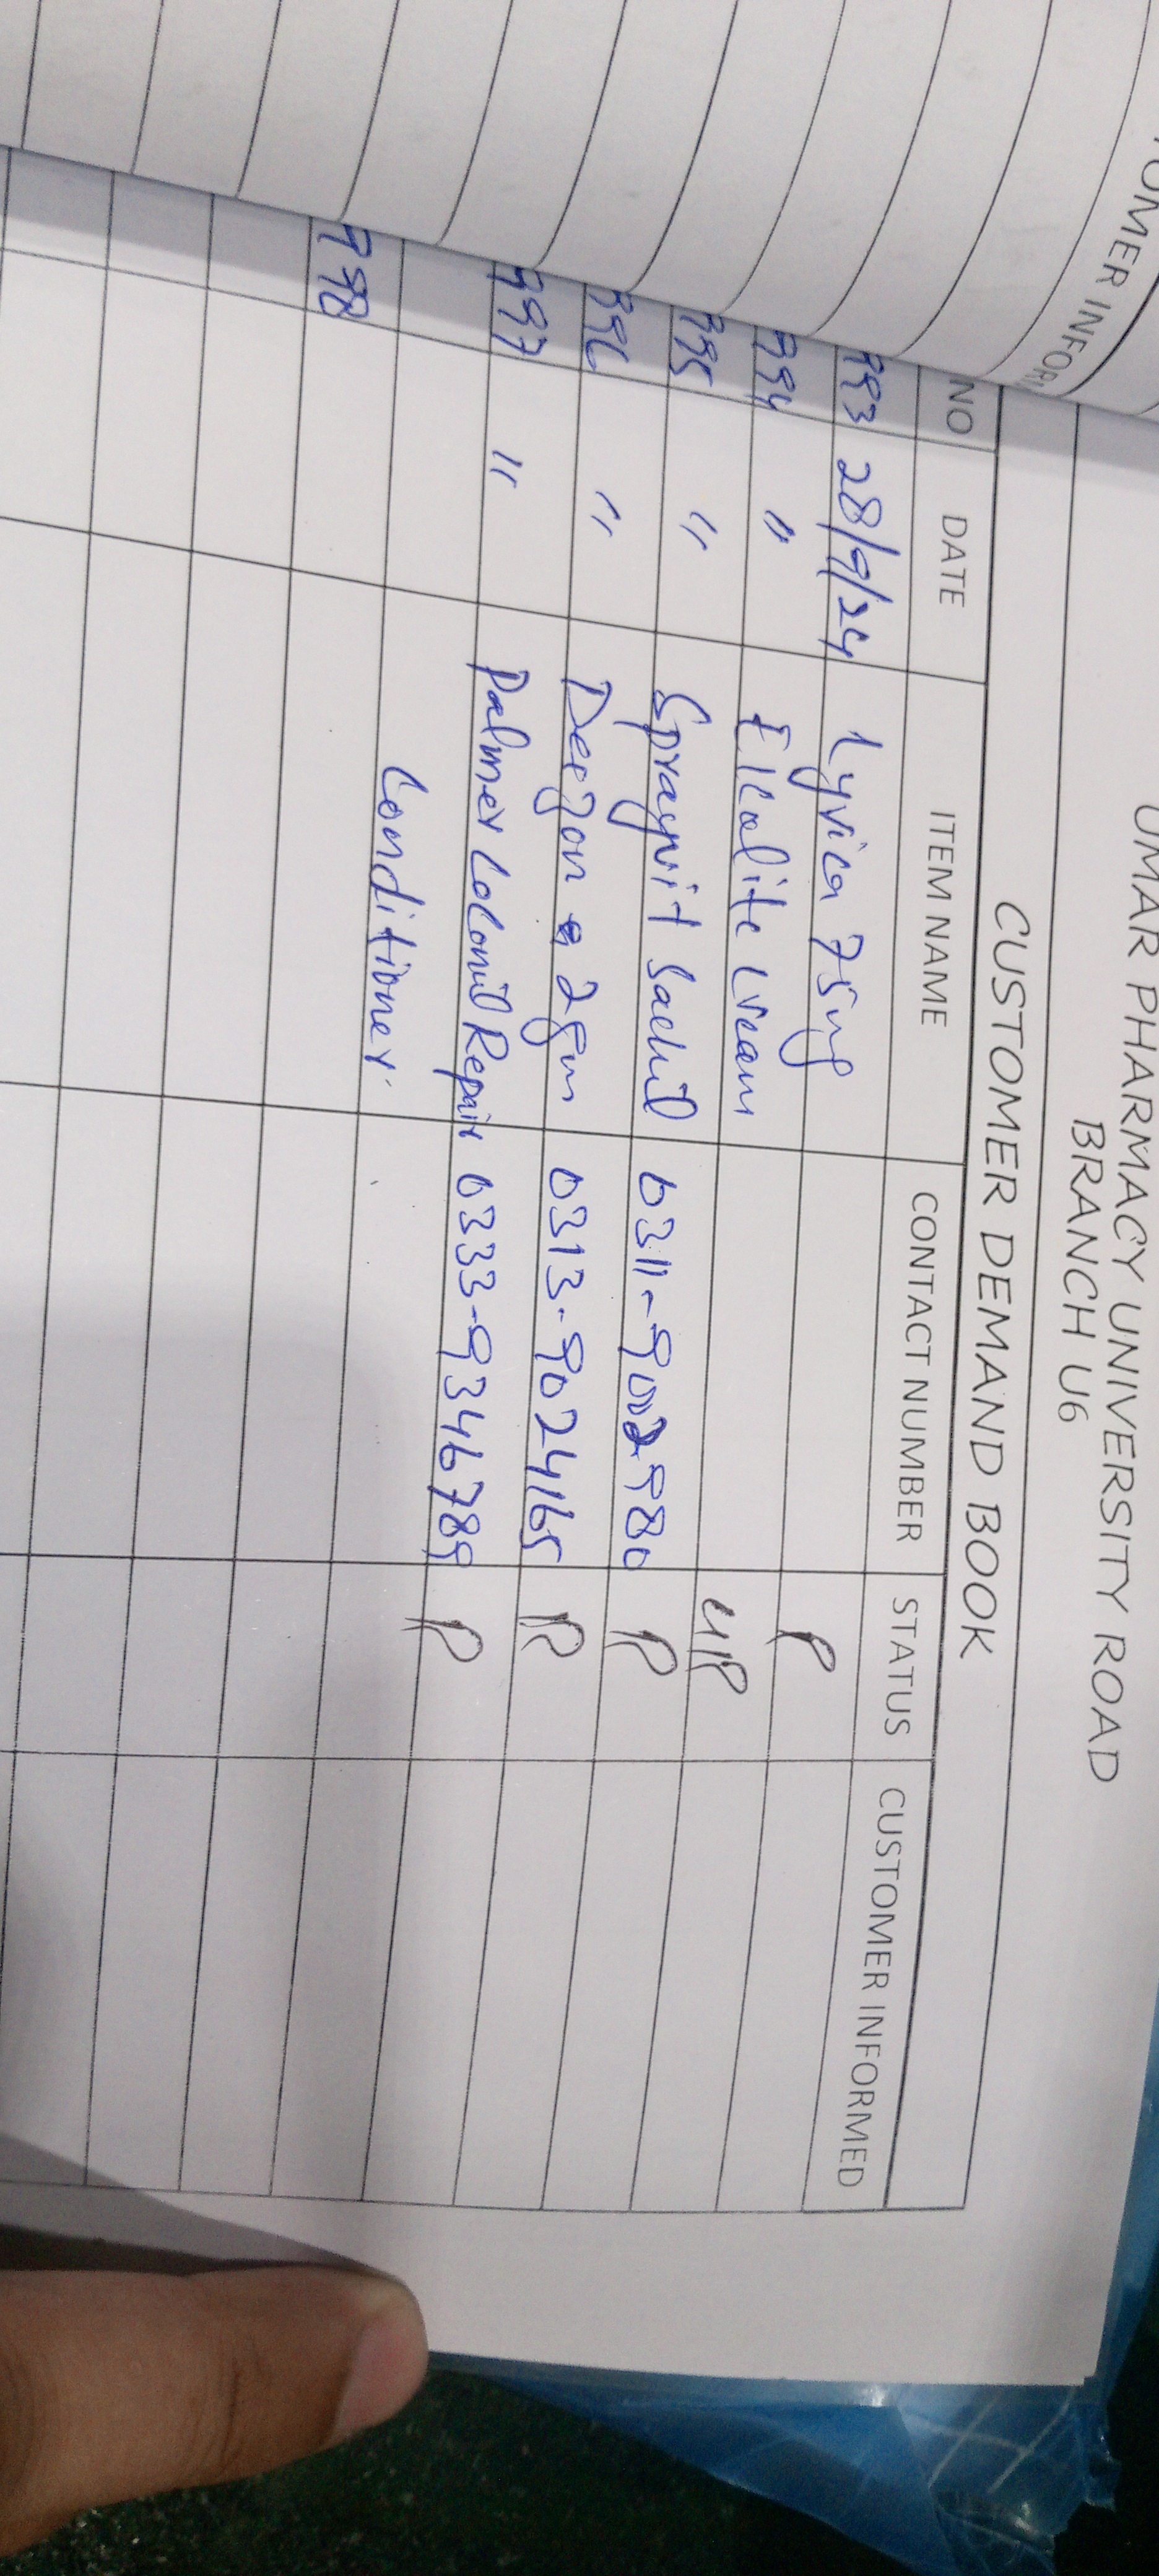 TOMER INFOR
UMAR PHARMACY UNIVERSITY ROAD
BRANCH U6
CUSTOMER DEMAND BOOK
NO DATE ITEM NAME CONTACT NUMBER STATUS CUSTOMER INFORMED
993 28/9/24 Lyrica 75mg P
994 " Elcalite Cream UP
995 " Sprayvit Sachet 0311-9002980 P
996 " Deezon 2gm 0313-9024165 P
997 " Palmer Coconut Repair 0333-9346789 P
Conditioner
998